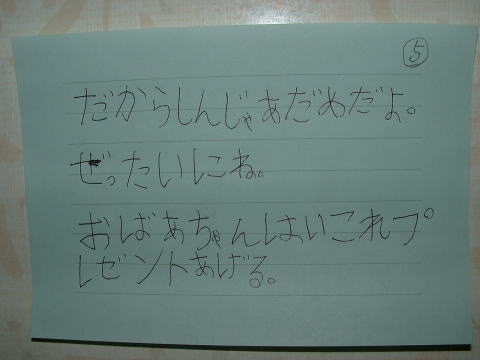 ⑤
だからしんじゃあだめだよ。
ぜったいにこね。
おばあちゃんはいこれプ
レゼントあげる。